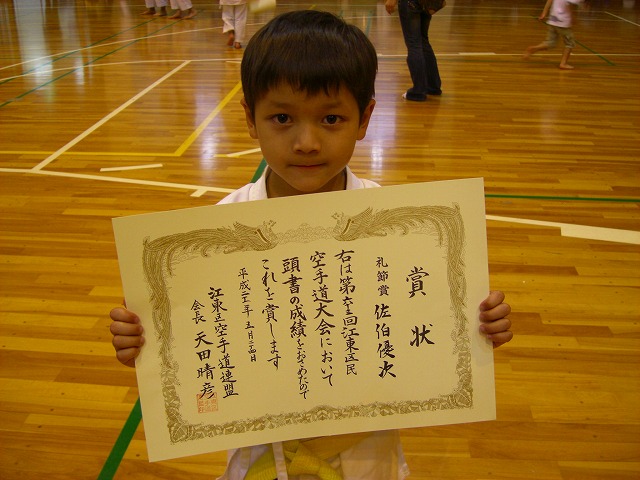 賞状
礼節賞 佐伯優次
右は第 回江東区民
空手道大会において
頭書の成績をおさめたので
これを賞します
平成二十一年 五月二十四日
江東区空手道連盟
会長 天田晴彦